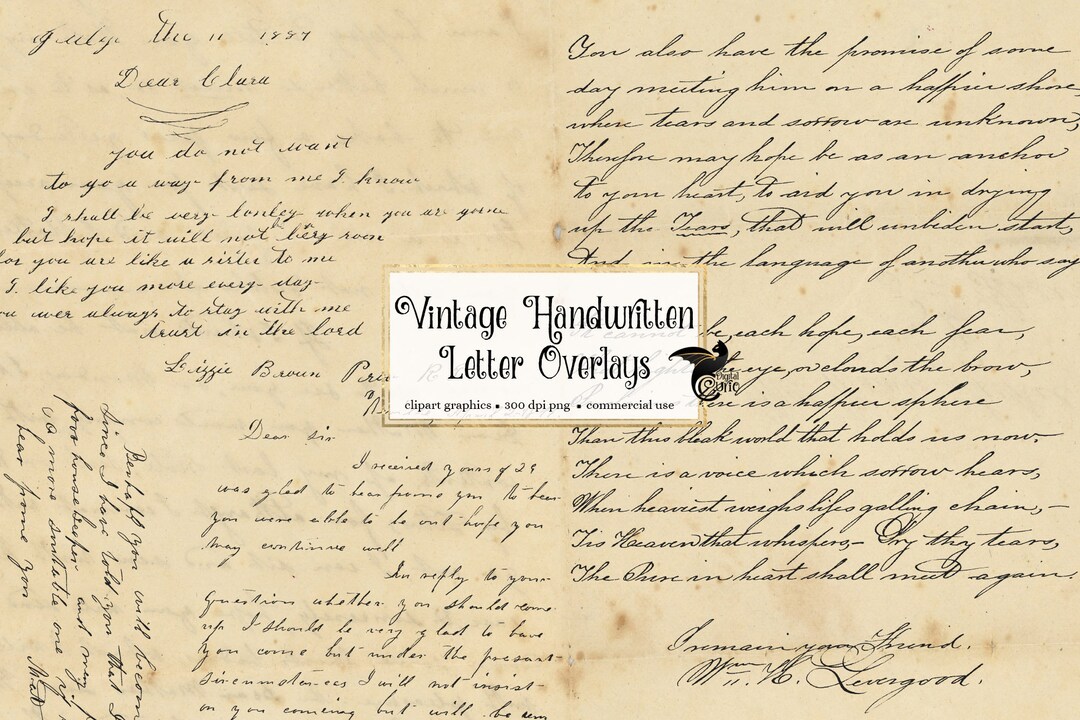 the 11 1887
Dear Clara
you do not want
to go a way from me I know
I shall be very lonley when you are gone
but hope it will not bery roon
for you are like a sister to me
I like you more every day
wer always to stay with me
trust in the lord
Lizzie Broun
Dear sir
I received yours of 29
was glad to hear from you to hear
you were able to be out hope you
may continue well
In reply to your
question whether you should come
up I should be very glad to have
you come but under the present
circumstances I will not insist
on you comeing but will be
Perhaps you will become
Since I have told you that I
for housekeeper and my
a more suitable one if
hear frome you
You also have the promise of some
day meeting him on a happier shore
where tears and sorrow are unknown,
Therefore may hope be as an anchor
to your heart, to aid you in drying
up the Tears, that will unbiden start,
And in the language of another who say
cannot be, each hope, each fear,
eye, or clouds the brow,
is a happier sphere
Than this bleak world that holds us now.
There is a voice which sorrow hears,
When heaviest weighs lifes galling chain,—
Tis Heaven that whispers,— Dry thy tears,
The Pure in heart shall meet again.
I remain your Friend.
Wm. H. Levergood.
Vintage Handwritten
Letter Overlays
clipart graphics ▪ 300 dpi png ▪ commercial use
Digital
Curio